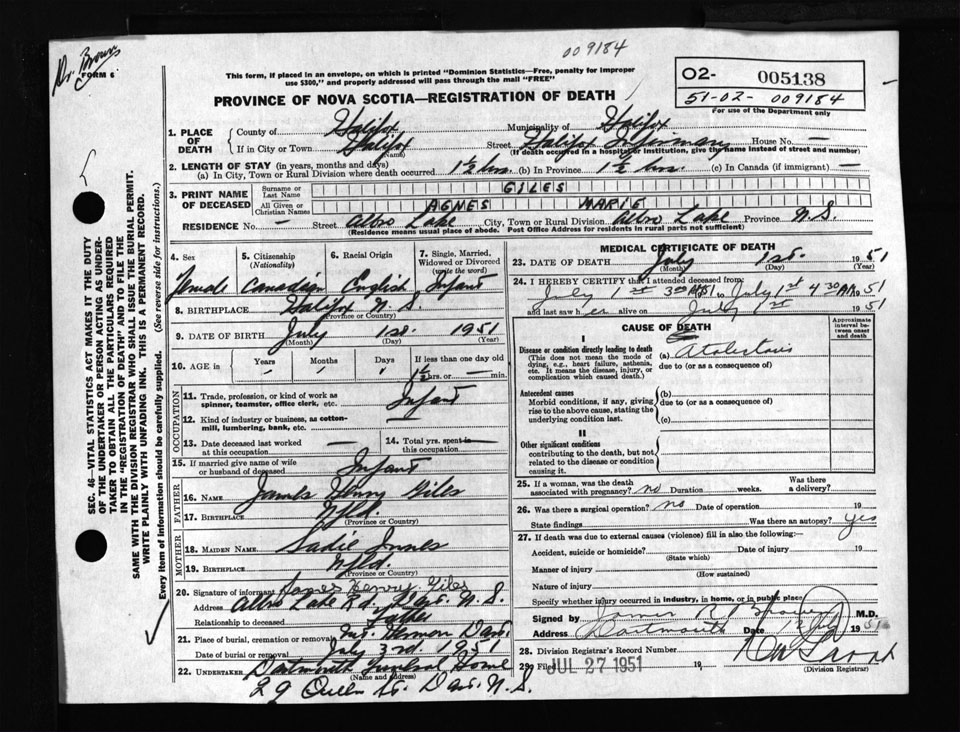 Dr Brown
009184
FORM 6
This form, if placed in an envelope, on which is printed "Dominion Statistics—Free, penalty for improper
use $300," and properly addressed will pass through the mail "FREE"
O2- 005138
51-02- 009184
For use of the Department only
PROVINCE OF NOVA SCOTIA—REGISTRATION OF DEATH
1. PLACE OF DEATH County of Halifax Municipality of Halifax
If in City or Town Halifax (Name) Street Halifax Infirmary House No. —
(If death occurred in a hospital or institution, give the name instead of street and number)
2. LENGTH OF STAY (in years, months and days)
(a) In City, Town or Rural Division where death occurred 1½ hrs. (b) In Province 1½ hrs. (c) In Canada (if immigrant) —
3. PRINT NAME OF DECEASED Surname or Last Name GILES
All Given or Christian Names AGNES MARIE
RESIDENCE No. — Street Albro Lake City, Town or Rural Division Albro Lake Province N.S.
(Residence means usual place of abode. Post Office Address for residents in rural parts not sufficient)
4. Sex Female
5. Citizenship (Nationality) Canadian
6. Racial Origin English
7. Single, Married, Widowed or Divorced (write the word) Infant
8. BIRTHPLACE Halifax N.S.
(Province or Country)
9. DATE OF BIRTH July 1st. 1951
(Month) (Day) (Year)
10. AGE in Years Months Days If less than one day old
1½ hrs. or — min.
OCCUPATION
11. Trade, profession, or kind of work as spinner, teamster, office clerk, etc. Infant
12. Kind of industry or business, as cotton-mill, lumbering, bank, etc. —
13. Date deceased last worked at this occupation —
14. Total yrs. spent in this occupation —
15. If married give name of wife or husband of deceased Infant
FATHER
16. NAME James Henry Giles
17. BIRTHPLACE Nfld.
(Province or Country)
MOTHER
18. MAIDEN NAME Sadie Innes
19. BIRTHPLACE Nfld.
(Province or Country)
20. Signature of informant James Henry Giles
Address Albro Lake Rd. N.S.
Relationship to deceased Father
21. Place of burial, cremation or removal Mt. Hermon Dart.
Date of burial or removal July 3rd. 1951
22. UNDERTAKER Dartmouth Funeral Home
(Name and address)
29 Queen St. Dart. N.S.
MEDICAL CERTIFICATE OF DEATH
23. DATE OF DEATH July 1st. 1951
(Month) (Day) (Year)
24. I HEREBY CERTIFY that I attended deceased from
July 1st 3 to July 1st 4 30 AM 1951
and last saw her alive on July 1st 1951
CAUSE OF DEATH
Approximate interval between onset and death
I
Disease or condition directly leading to death
(This does not mean the mode of dying, e.g., heart failure, asthenia, etc. It means the disease, injury, or complication which caused death.)
(a) Atalectasis
due to (or as a consequence of)
Antecedent causes
Morbid conditions, if any, giving rise to the above cause, stating the underlying condition last.
(b)
due to (or as a consequence of)
(c)
II
Other significant conditions
contributing to the death, but not related to the disease or condition causing it.
25. If a woman, was the death associated with pregnancy? no Duration weeks. Was there a delivery?
26. Was there a surgical operation? no Date of operation 19
State findings Was there an autopsy? yes
27. If death was due to external causes (violence) fill in also the following:
Accident, suicide or homicide? Date of injury 19
(State which)
Manner of injury
(How sustained)
Nature of injury
Specify whether injury occurred in industry, in home, or in public place
Signed by M.D.
Address Dartmouth Date July 1951
28. Division Registrar's Record Number
29. Filed JUL 27 1951 19
(Division Registrar)
SEC. 46—VITAL STATISTICS ACT MAKES IT THE DUTY
OF THE UNDERTAKER OR PERSON ACTING AS UNDER-
TAKER TO OBTAIN ALL THE PARTICULARS REQUIRED
IN THE "REGISTRATION OF DEATH" AND TO FILE THE
SAME WITH THE DIVISION REGISTRAR WHO SHALL ISSUE THE BURIAL PERMIT.
WRITE PLAINLY WITH UNFADING INK. THIS IS A PERMANENT RECORD.
Every item of information should be carefully supplied. (See reverse side for instructions.)